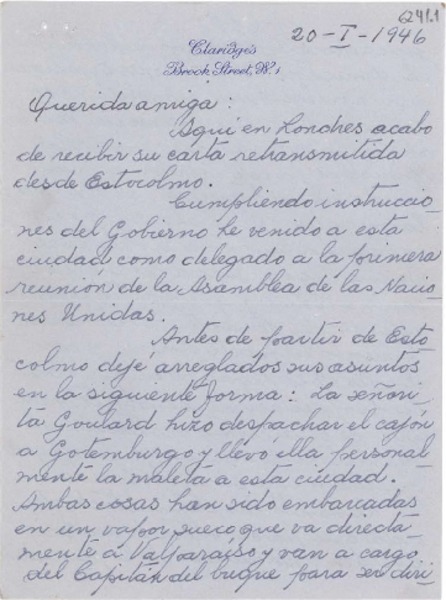 241.1
20-I-1946
Claridge's
Brook Street, W.1
Querida amiga:
Aquí en Londres acabo
de recibir su carta retransmitida
desde Estocolmo.
Cumpliendo instruccio-
nes del Gobierno he venido a esta
ciudad como delegado a la primera
reunión de la Asamblea de las Nacio-
nes Unidas.
Antes de partir de Esto-
colmo dejé arreglados sus asuntos
en la siguiente forma: La señori-
ta Goulard hizo despachar el cajón
a Gotemburgo y llevó ella personal
mente la maleta a esta ciudad.
Ambas cosas han sido embarcadas
en un vapor sueco que va directa-
mente a Valparaíso y van a cargo
del Capitán del buque para ser diri